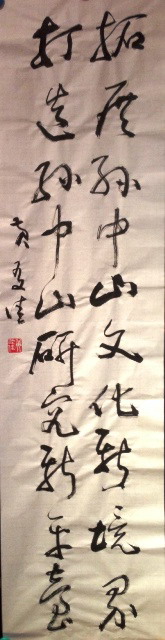 拓展孙中山文化新境界
打造孙中山研究新平台